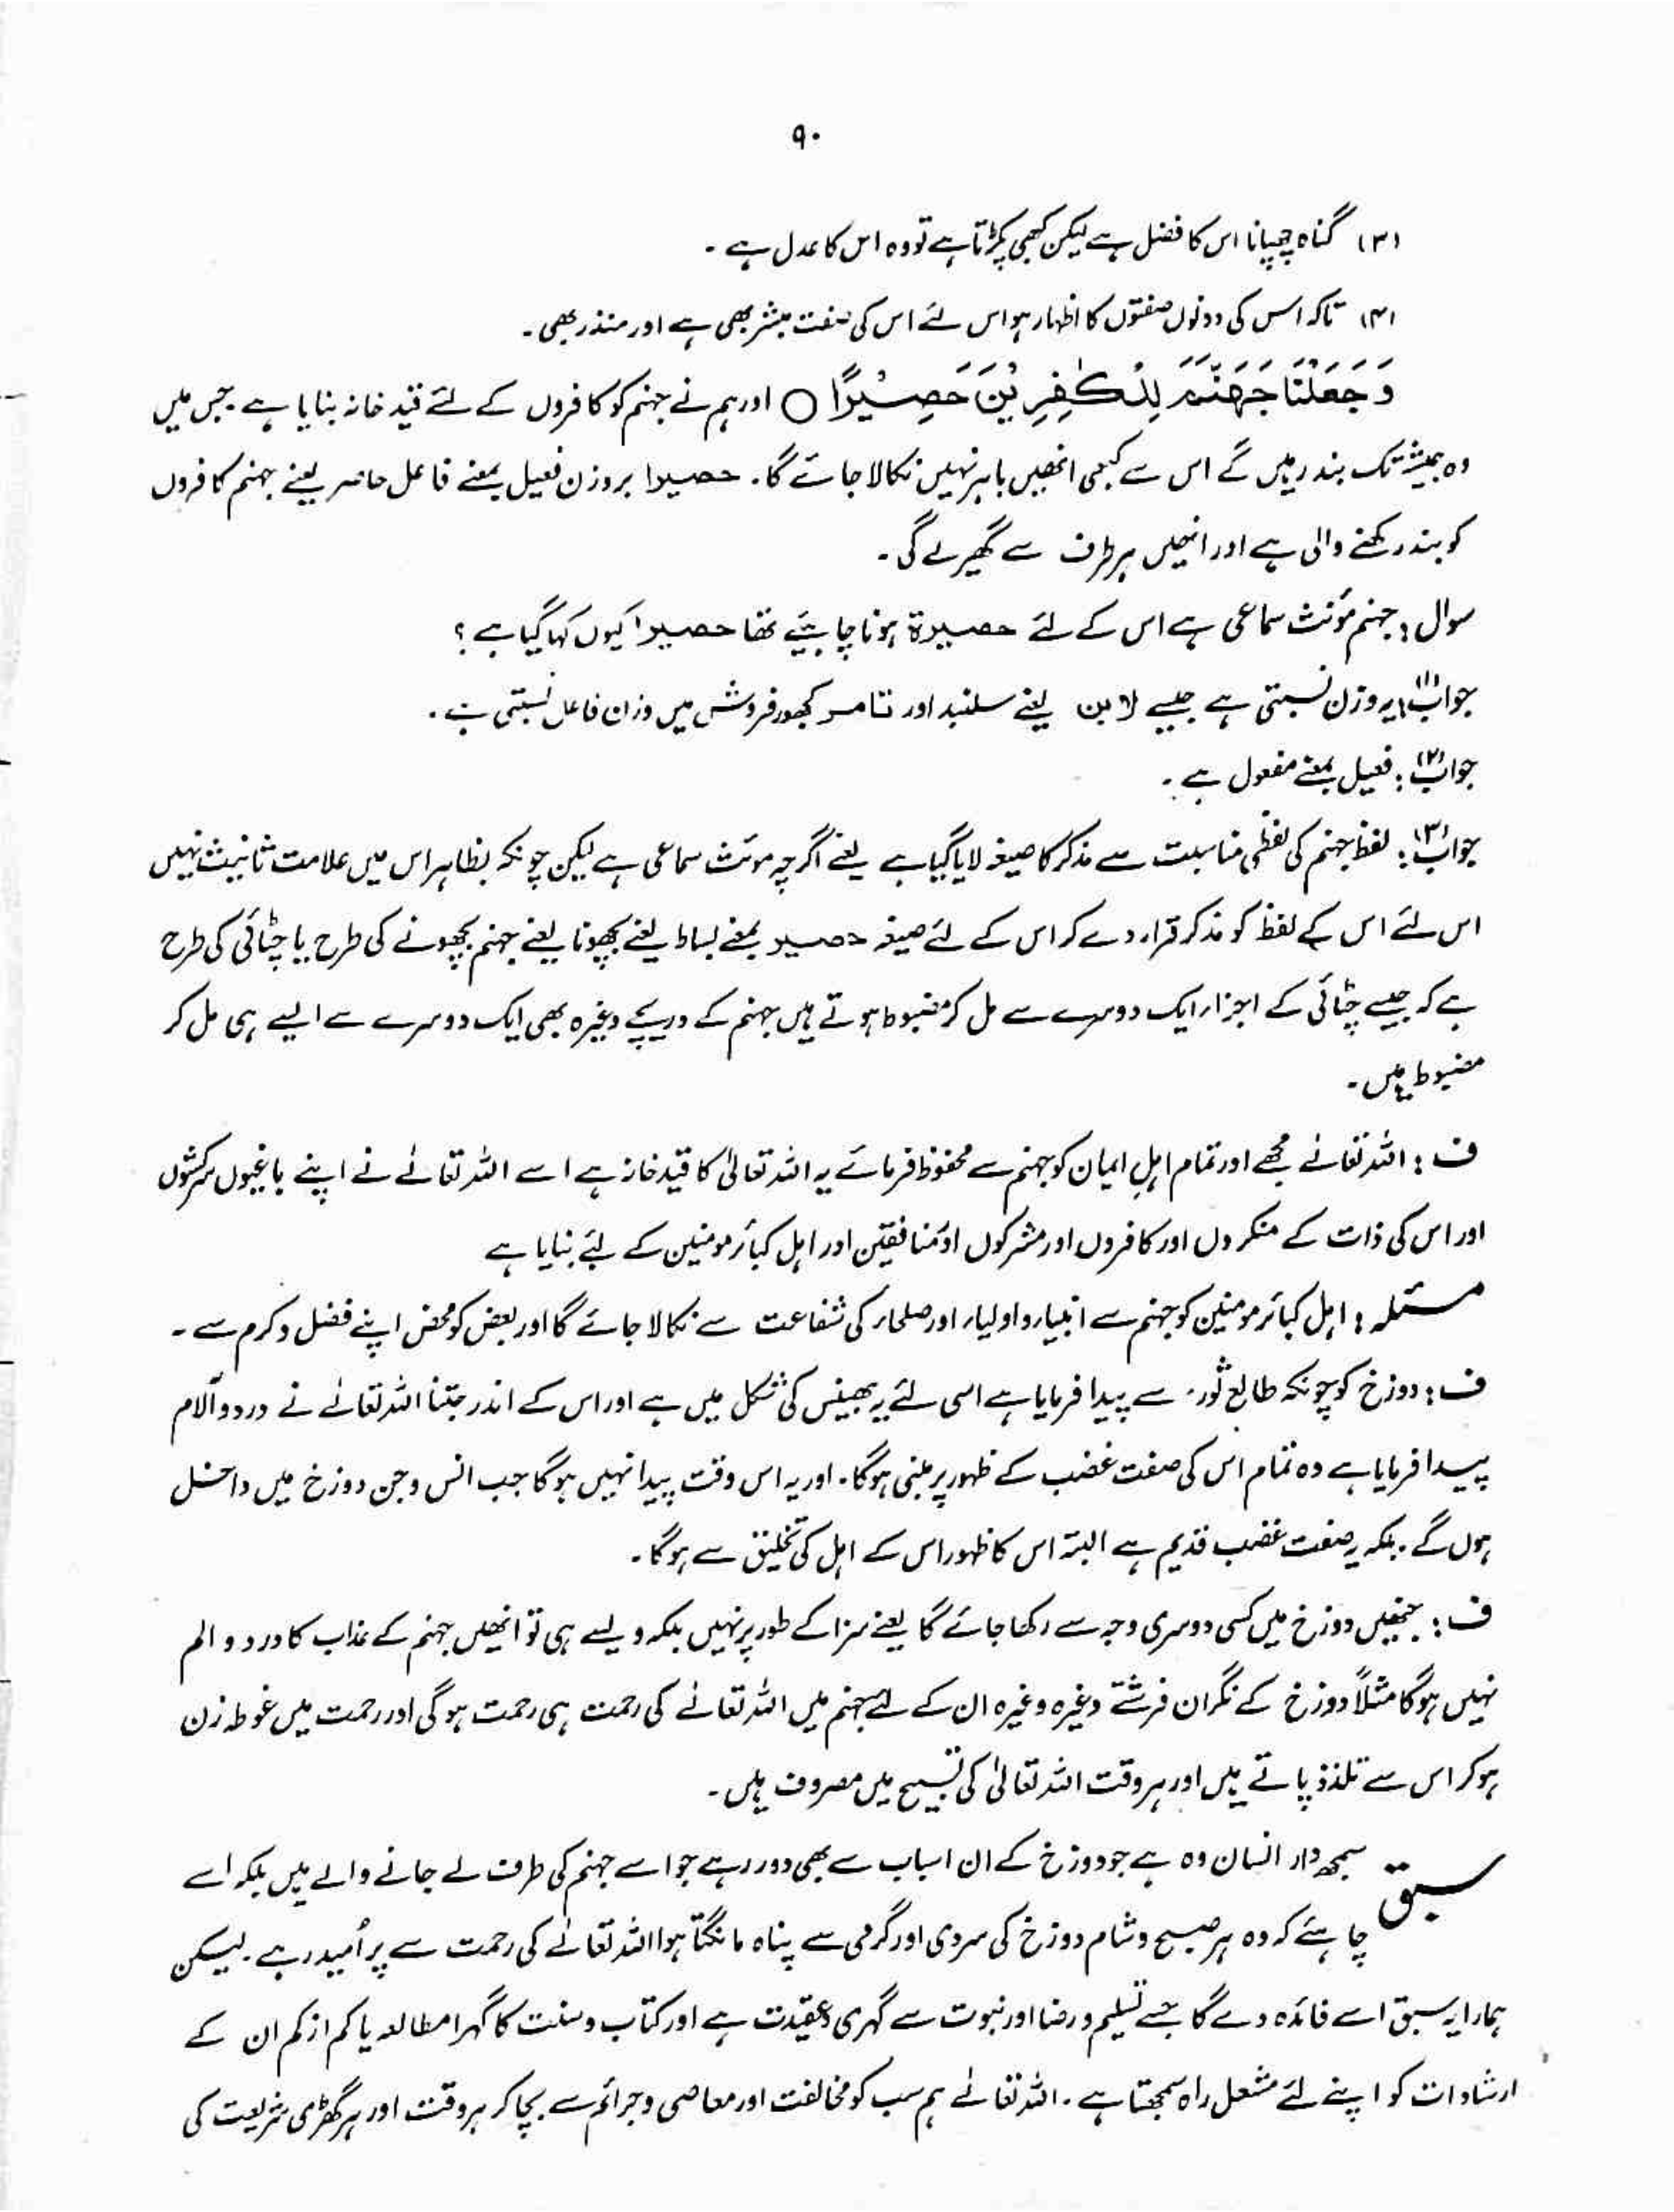 ۹۰
(۳) گناہ چھپانا اس کا فضل ہے لیکن کبھی پکڑتا ہے تو وہ اس کا عدل ہے ۔
(۴) تاکہ اس کی دونوں صفتوں کا اظہار ہو اس لئے اس کی صفت مبشر بھی ہے اور منذر بھی ۔
وَجَعَلْنَا جَهَنَّمَ لِلْكٰفِرِيْنَ حَصِيْرًا ○ اور ہم نے جہنم کو کافروں کے لئے قید خانہ بنایا ہے جس میں
وہ ہمیشہ تک بند رہیں گے اس سے کبھی انھیں باہر نہیں نکالا جائے گا ۔ حصیرا بروزن فعیل بمعنے فاعل حاصر یعنے جہنم کافروں
کو بند رکھنے والی ہے اور انھیں ہر طرف سے گھیر لے گی ۔
سوال : جہنم مؤنث سماعی ہے اس کے لئے حصیرۃ ہونا چاہیئے تھا حصیرا کیوں کہا گیا ہے ؟
جواب (۱) یہ وزن نسبتی ہے جیسے لابن یعنے اور تامر کھجور فروش میں وزن فاعل نسبتی ہے ۔
جواب (۲) : فعیل بمعنے مفعول ہے ۔
جواب (۳) : لفظ جہنم کی لفظی مناسبت سے مذکر کا صیغہ لایا گیا ہے یعنے اگرچہ مونث سماعی ہے لیکن چونکہ بظاہر اس میں علامت تانیث نہیں
اس لئے اس کے لفظ کو مذکر قرار دے کر اس کے لئے صیغہ حصیر بمعنے بساط یعنے بچھونا یعنے جہنم بچھونے کی طرح یا چٹائی کی طرح
ہے کہ جیسے چٹائی کے اجزاء ایک دوسرے سے مل کر مضبوط ہوتے ہیں جہنم کے دریچے وغیرہ بھی ایک دوسرے سے ایسے ہی مل کر
مضبوط ہیں ۔
ف : اللہ تعالےٰ مجھے اور تمام اہلِ ایمان کو جہنم سے محفوظ فرمائے یہ اللہ تعالیٰ کا قیدخانہ ہے اسے اللہ تعالےٰ نے اپنے باغیوں سرکشوں
اور اس کی ذات کے منکروں اور کافروں اور مشرکوں اور منافقین اور اہل کبائر مومنین کے لئے بنایا ہے
مسئلہ : اہل کبائر مومنین کو جہنم سے انبیاء و اولیاء اور صلحاء کی شفاعت سے نکالا جائے گا اور بعض کو محض اپنے فضل و کرم سے ۔
ف : دوزخ کو چونکہ طالع ثور سے پیدا فرمایا ہے اسی لئے یہ بھینس کی شکل میں ہے اور اس کے اندر جتنا اللہ تعالےٰ نے درد و آلام
پیدا فرمایا ہے وہ تمام اس کی صفت غضب کے ظہور پر مبنی ہوگا ۔ اور یہ اس وقت پیدا نہیں ہوگا جب انس و جن دوزخ میں داخل
ہوں گے ۔ بلکہ یہ صفت غضب قدیم ہے البتہ اس کا ظہور اس کے اہل کی تخلیق سے ہوگا ۔
ف : جنھیں دوزخ میں کسی دوسری وجہ سے رکھا جائے گا یعنے سزا کے طور پر نہیں بلکہ ویسے ہی تو انھیں جہنم کے عذاب کا درد و الم
نہیں ہوگا مثلاً دوزخ کے نگران فرشتے وغیرہ وغیرہ ان کے لئے جہنم میں اللہ تعالےٰ کی رحمت ہی رحمت ہوگی اور رحمت میں غوطہ زن
ہو کر اس سے تلذذ پاتے ہیں اور ہر وقت اللہ تعالیٰ کی تسبیح میں مصروف ہیں ۔
سبق سمجھ دار انسان وہ ہے جو دوزخ کے ان اسباب سے بھی دور رہے جو اسے جہنم کی طرف لے جانے والے ہیں بلکہ اسے
چاہئے کہ وہ ہر صبح و شام دوزخ کی سردی اور گرمی سے پناہ مانگتا ہوا اللہ تعالےٰ کی رحمت سے پر اُمید رہے ۔ لیکن
ہمارا یہ سبق اسے فائدہ دے گا جسے تسلیم و رضا اور نبوت سے گہری عقیدت ہے اور کتاب و سنت کا گہرا مطالعہ یا کم از کم ان کے
ارشادات کو اپنے لئے مشعل راہ سمجھتا ہے ۔ اللہ تعالےٰ ہم سب کو مخالفت اور معاصی و جرائم سے بچا کر ہر وقت اور ہر گھڑی شریعت کی